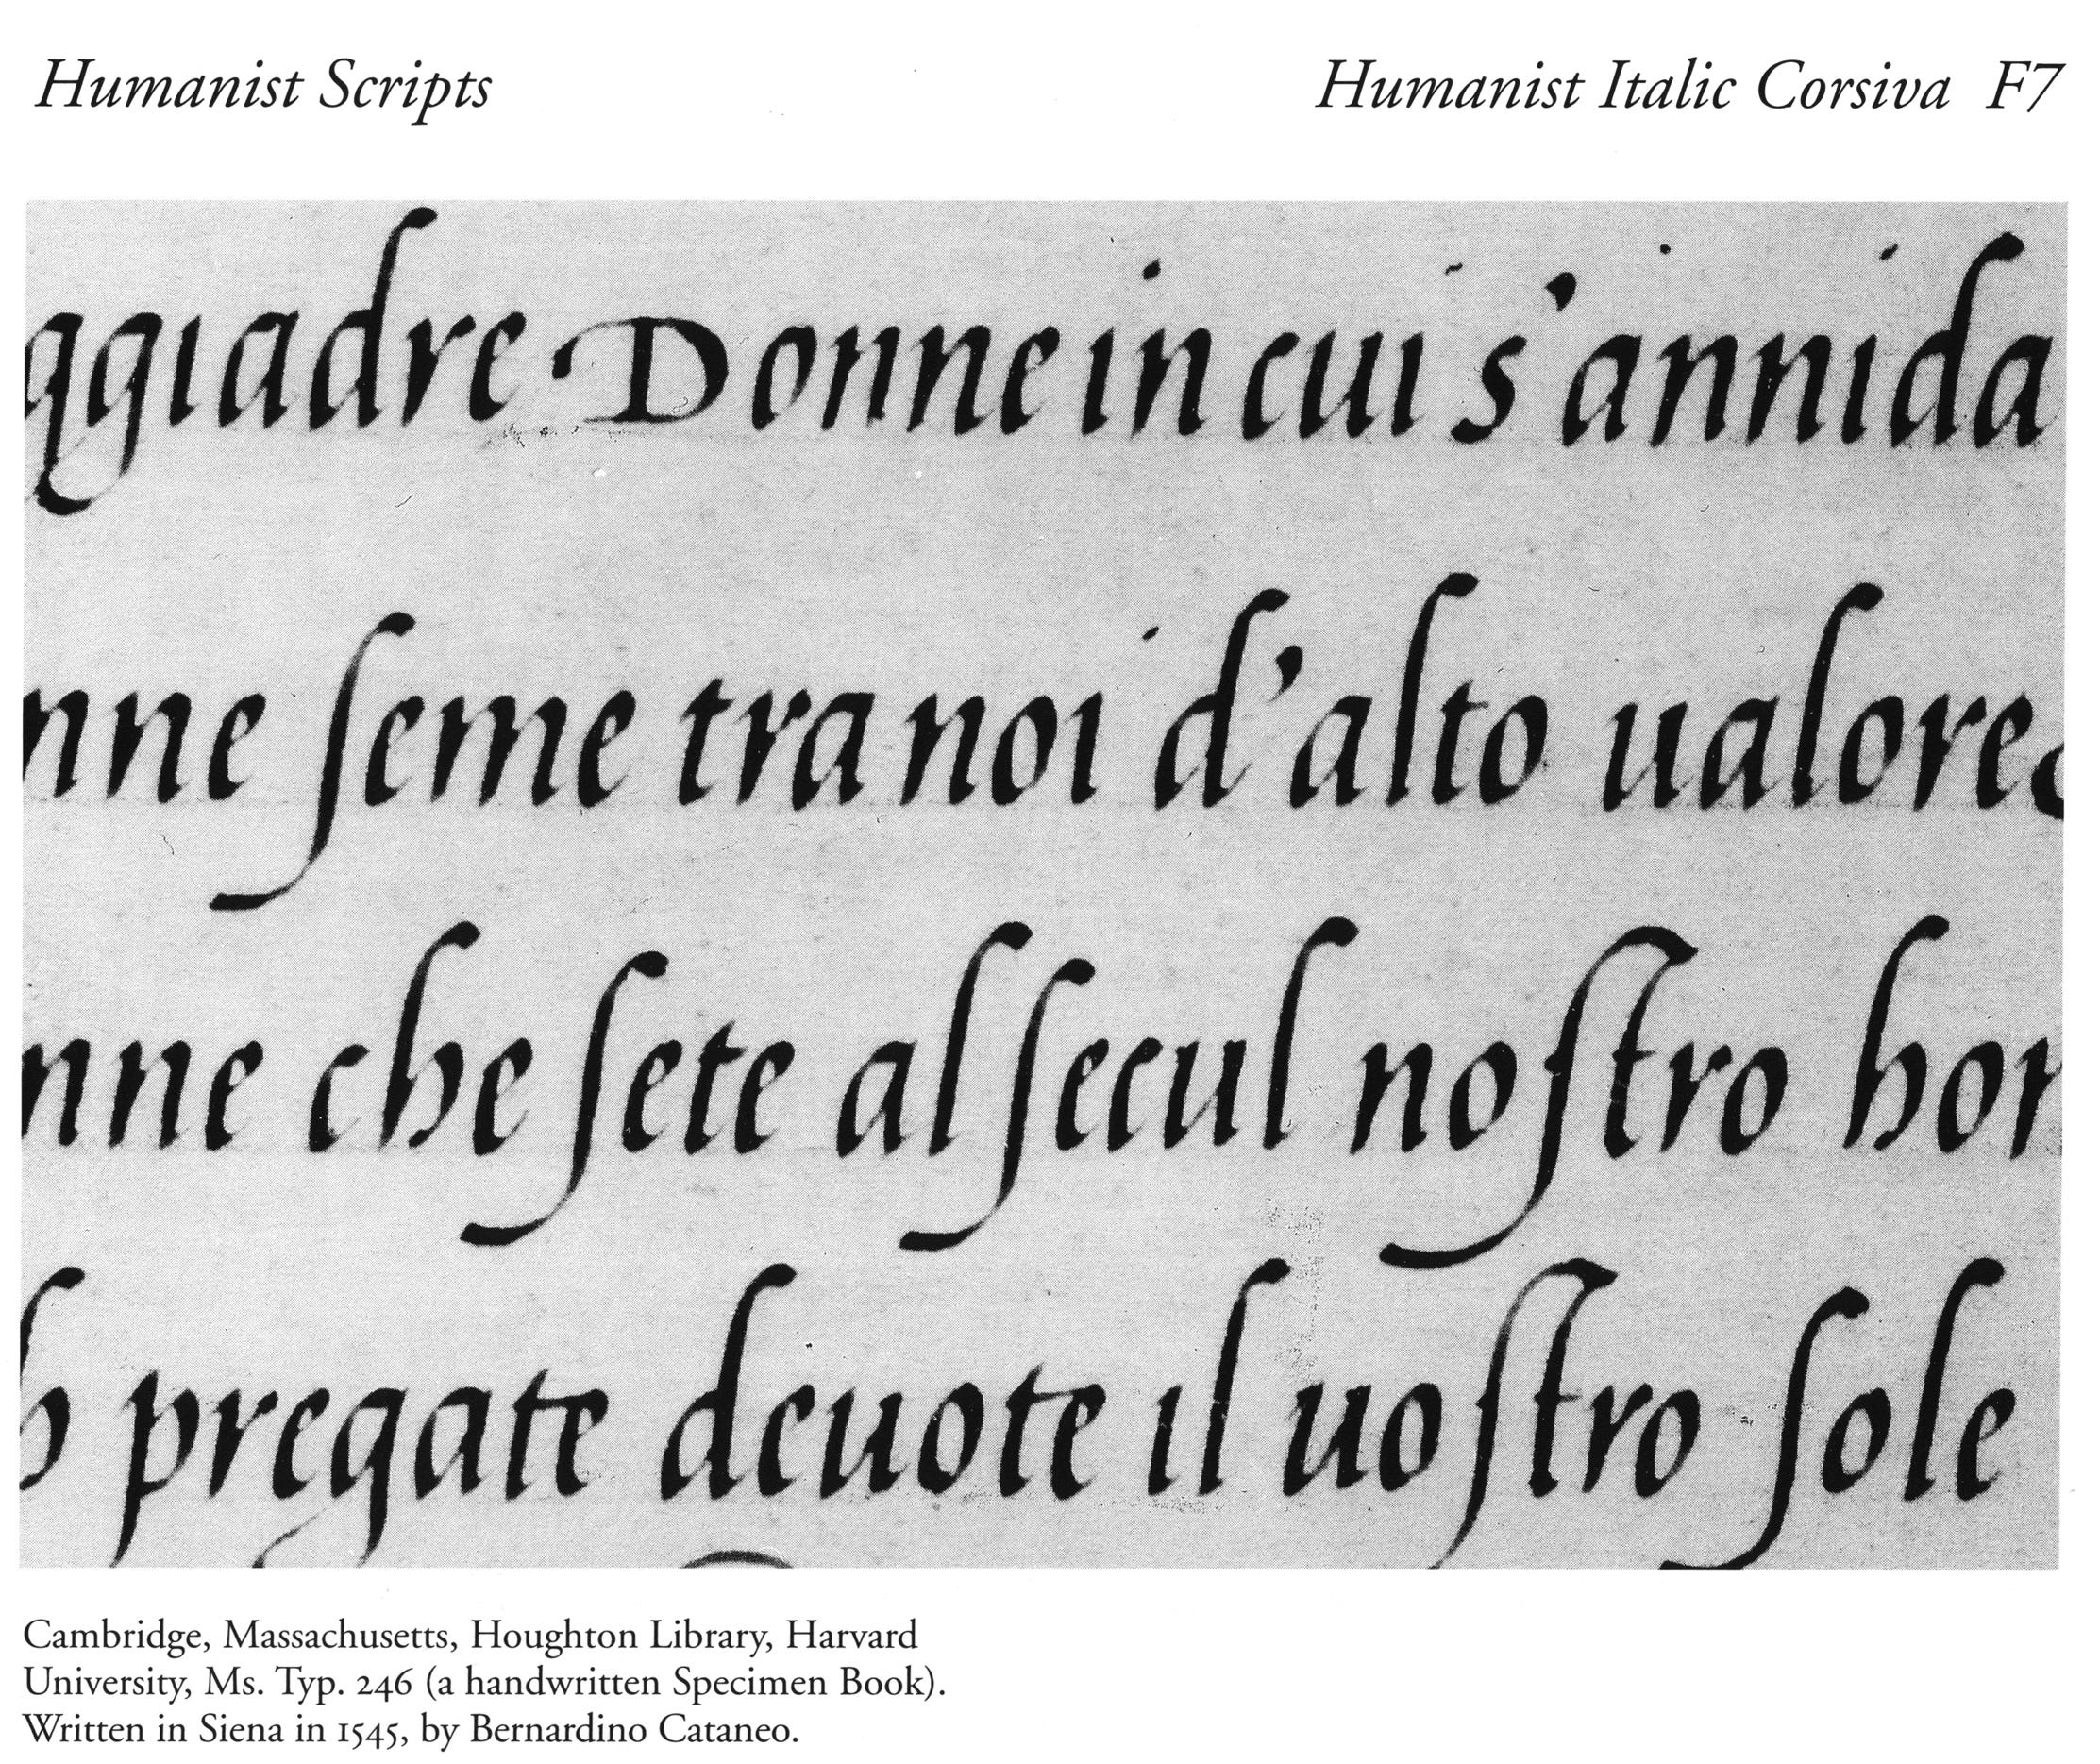 Humanist Scripts
Humanist Italic Corsiva F7
ggiadre · Donne in cui s'annida
nne ſeme tra noi d'alto ualore
nne che ſete al ſecul noſtro hor
pregate deuote il uoſtro ſole
Cambridge, Massachusetts, Houghton Library, Harvard
University, Ms. Typ. 246 (a handwritten Specimen Book).
Written in Siena in 1545, by Bernardino Cataneo.